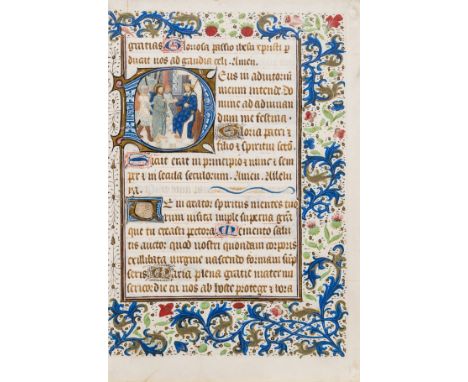 gratias Gloriosa passio ihesu xpristi p
ducat nos ad gaudia celi. Amen.
Deus in adiutoriu
meum intende Do
mine ad adiuuan
dum me festina.
Gloria patri et
filio et spiritui
Sicut erat in principio et nunc et sem
per et in secula seculorum. Amen. Allelu
ya.
Veni creator spiritus mentes tuo
rum visita imple superna gra
que tu creasti pectora Memento salu
tis auctor quod nostri quondam corporis
ex illibata virgine nascendo formam sup
seris Maria plena gratie mater mi
sericordie tu nos ab hoste protege et hora